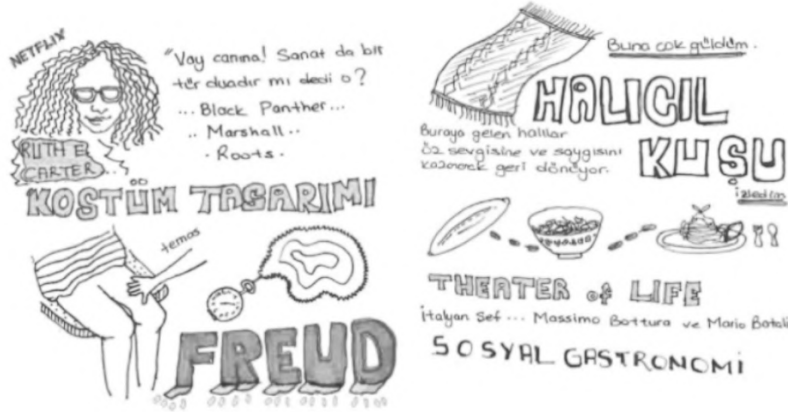 NETFLIX
"Vay canına! Sanat da bir
tür duadır mı dedi o?
... Black Panther...
.. Marshall ..
. Roots .
RUTH E.
CARTER...
KOSTÜM TASARIMI
temas
FREUD
Buna çok güldüm.
HALICIL
KUŞU
Buraya gelen halılar
öz sevgisine ve saygısını
kazanarak geri dönüyor.
izledim
THEATER of LIFE
İtalyan Şef ... Massimo Bottura ve Mario Batali
SOSYAL GASTRONOMİ